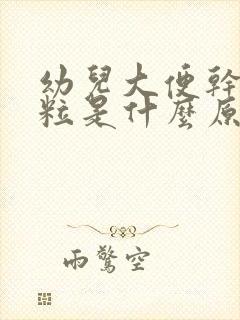 幼兒大便幹
粒是什麼原
雨驚空